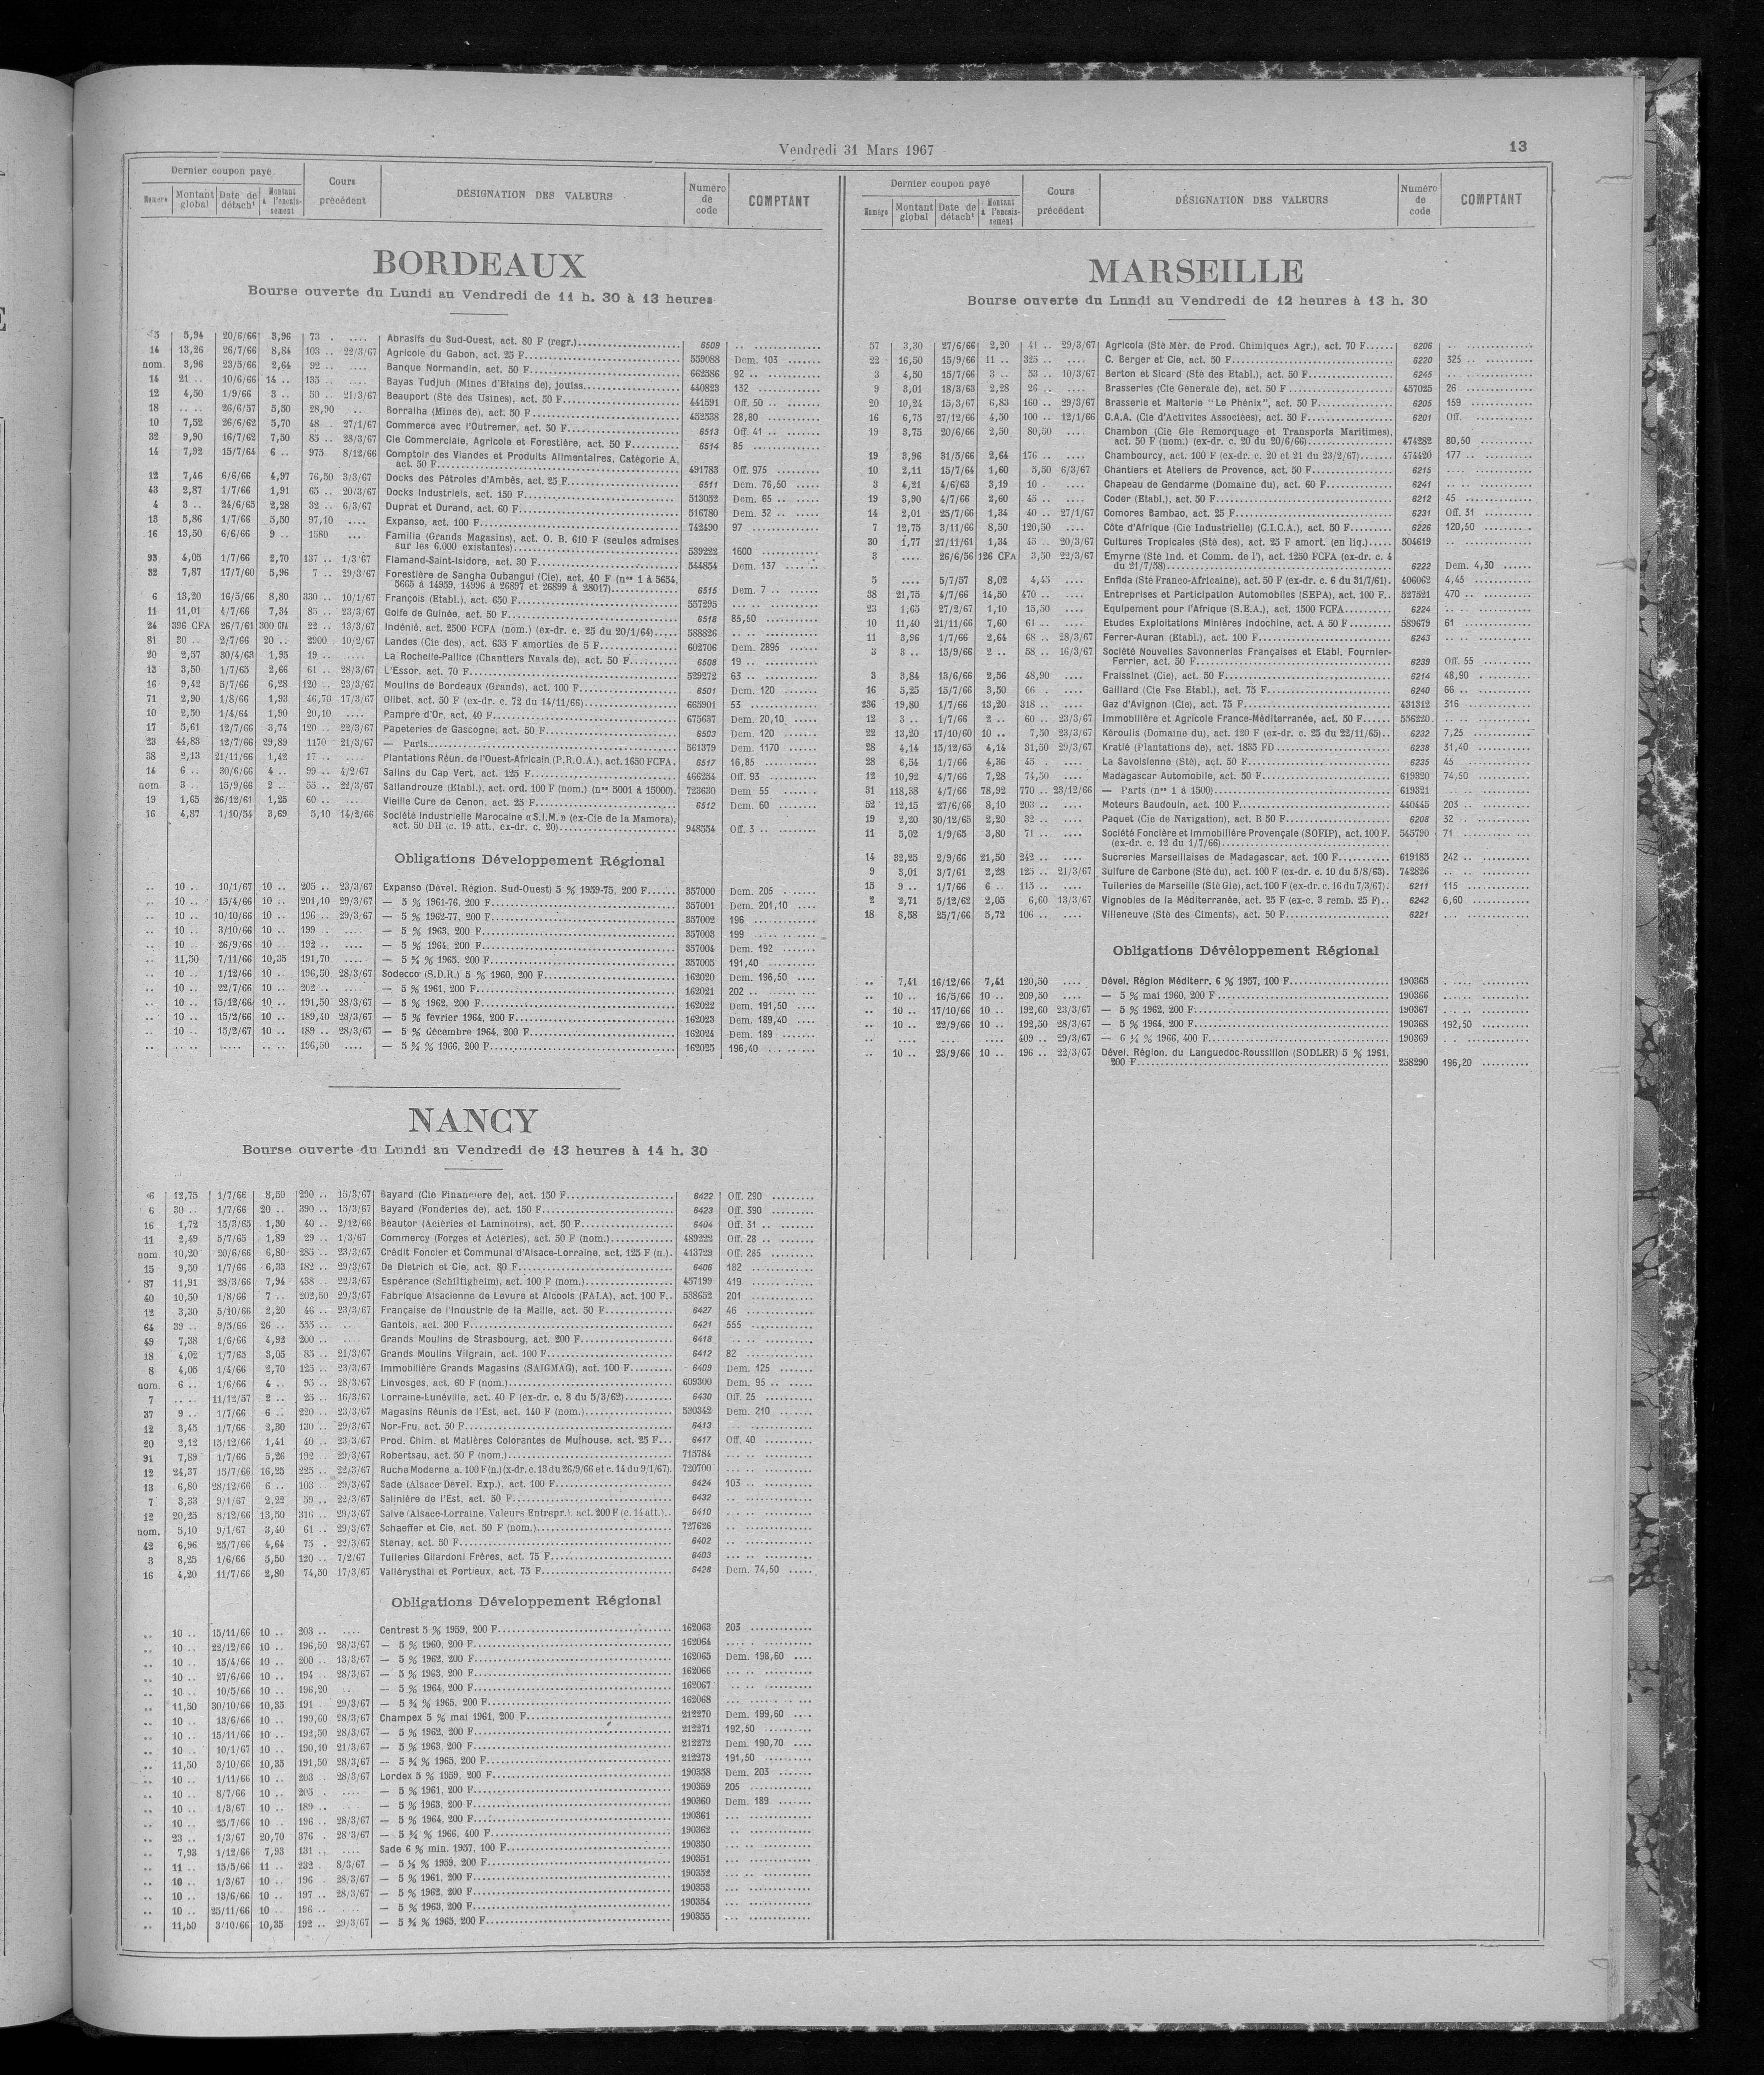 Vendredi 31 Mars 1967
13
Dernier coupon payé
Numéro
Montant global
Date de détach^t
Montant à l'encais-sement
Cours précédent
DÉSIGNATION DES VALEURS
Numéro de code
COMPTANT
BORDEAUX
Bourse ouverte du Lundi au Vendredi de 11 h. 30 à 13 heures
5 5,94 20/6/66 3,96 73 . .... Abrasifs du Sud-Ouest, act. 80 F (regr.) 6509 .. ....
14 13,26 26/7/66 8,84 103 .. 22/3/67 Agricole du Gabon, act. 25 F 559088 Dem. 103
nom. 3,96 23/5/66 2,64 92 .. .... Banque Normandin, act. 50 F 662586 92 ..
14 21 .. 10/6/66 14 .. 135 .. .... Bayas Tudjuh (Mines d'Etains de), jouiss. 440823 132
12 4,50 1/9/66 3 .. 50 .. 21/3/67 Beauport (Sté des Usines), act. 50 F 441591 Off. 50 ..
18 .. .. 26/6/57 5,50 28,90 .. Borralha (Mines de), act. 50 F 452538 28,80
10 7,52 26/6/62 5,70 48 .. 27/1/67 Commerce avec l'Outremer, act. 50 F 6513 Off. 41 ..
32 9,90 16/7/62 7,50 85 .. 28/3/67 Cie Commerciale, Agricole et Forestière, act. 50 F 6514 85
14 7,92 15/7/64 6 .. 975 8/12/66 Comptoir des Viandes et Produits Alimentaires, Catégorie A,
act. 50 F 491783 Off. 975
12 7,46 6/6/66 4,97 76,50 3/3/67 Docks des Pétroles d'Ambès, act. 25 F 6511 Dem. 76,50
43 2,87 1/7/66 1,91 65 .. 20/3/67 Docks Industriels, act. 150 F 513052 Dem. 65 ..
4 3 .. 24/6/65 2,28 32 .. 6/3/67 Duprat et Durand, act. 60 F 516780 Dem. 32 ..
13 5,86 1/7/66 5,50 97,10 .... Expanso, act. 100 F 742490 97
16 13,50 6/6/66 9 .. 1580 ... Familia (Grands Magasins), act. O. B. 610 F (seules admises
sur les 6.000 existantes) 539222 1600
93 4,05 1/7/66 2,70 137 .. 1/3/67 Flamand-Saint-Isidore, act. 30 F 544854 Dem. 137
32 7,87 17/7/60 5,96 7 .. 29/3/67 Forestière de Sangha Oubangui (Cie), act. 40 F (nos 1 à 5654,
5665 à 14959, 14996 à 26897 et 26899 à 28017) 6515 Dem. 7 ..
6 13,20 16/5/66 8,80 330 .. 10/1/67 François (Etabl.), act. 650 F 557295 ... ..
11 11,01 4/7/66 7,34 85 .. 23/3/67 Golfe de Guinée, act. 50 F 6518 85,50
24 396 CFA 26/7/61 300 CFA 22 .. 13/3/67 Indénié, act. 2500 FCFA (nom.) (ex-dr. c. 25 du 20/1/64) 588826 .. ..
81 30 .. 2/7/66 20 .. 2900 10/2/67 Landes (Cie des), act. 635 F amorties de 5 F 602706 Dem. 2895
20 2,57 30/4/63 1,95 19 .. .... La Rochelle-Pallice (Chantiers Navals de), act. 50 F 6508 19 ..
13 3,50 1/7/65 2,66 61 .. 28/3/67 L'Essor, act. 70 F 529272 63 ..
16 9,42 5/7/66 6,28 120 .. 23/3/67 Moulins de Bordeaux (Grands), act. 100 F 6501 Dem. 120
71 2,90 1/8/66 1,93 46,70 17/3/67 Olibet, act. 50 F (ex-dr. c. 72 du 14/11/66) 663901 53
10 2,50 1/4/64 1,90 20,10 .... Pampre d'Or, act. 40 F 675637 Dem. 20,10
17 5,61 12/7/66 3,74 120 .. 22/3/67 Papeteries de Gascogne, act. 50 F 6503 Dem. 120
23 44,83 12/7/66 29,89 1170 21/3/67 — Parts 561379 Dem. 1170
38 2,13 21/11/66 1,42 17 .. .... Plantations Réun. de l'Ouest-Africain (P.R.O.A.), act. 1650 FCFA. 6517 16,85
14 6 .. 30/6/66 4 .. 99 .. 4/2/67 Salins du Cap Vert, act. 125 F 466254 Off. 93
nom. 3 .. 15/9/66 2 .. 55 .. 22/3/67 Sallandrouze (Etabl.), act. ord. 100 F (nom.) (nos 5001 à 15000). 723630 Dem. 55
19 1,65 26/12/61 1,25 60 .. .... Vieille Cure de Cenon, act. 25 F 6512 Dem. 60
16 4,87 1/10/54 3,69 5,10 14/2/66 Société Industrielle Marocaine «S.I.M.» (ex-Cie de la Mamora),
act. 50 DH (c. 19 att., ex-dr. c. 20) 948554 Off. 3 ..
Obligations Développement Régional
.. 10 .. 10/1/67 10 .. 205 .. 23/3/67 Expanso (Dével. Région. Sud-Ouest) 5 % 1959-75, 200 F 357000 Dem. 205
.. 10 .. 15/4/66 10 .. 201,10 29/3/67 — 5 % 1961-76, 200 F 357001 Dem. 201,10
.. 10 .. 10/10/66 10 .. 196 .. 29/3/67 — 5 % 1962-77, 200 F 357002 196
.. 10 .. 3/10/66 10 .. 199 .. .... — 5 % 1963, 200 F 357003 199
.. 10 .. 26/9/66 10 .. 192 .. .... — 5 % 1964, 200 F 357004 Dem. 192
.. 11,50 7/11/66 10,35 191,70 .... — 5 ¾ % 1965, 200 F 357005 191,40
.. 10 .. 1/12/66 10 .. 196,50 28/3/67 Sodecco (S.D.R.) 5 % 1960, 200 F 162020 Dem. 196,50
.. 10 .. 22/7/66 10 .. 202 .. .... — 5 % 1961, 200 F 162021 202 ..
.. 10 .. 15/12/66 10 .. 191,50 28/3/67 — 5 % 1962, 200 F 162022 Dem. 191,50
.. 10 .. 15/2/66 10 .. 189,40 28/3/67 — 5 % février 1964, 200 F 162023 Dem. 189,40
.. 10 .. 15/2/67 10 .. 189 .. 28/3/67 — 5 % décembre 1964, 200 F 162024 Dem. 189
.. .. .. .... .. .. 196,50 .... — 5 ¾ % 1966, 200 F 162025 196,40
NANCY
Bourse ouverte du Lundi au Vendredi de 13 heures à 14 h. 30
6 12,75 1/7/66 8,50 290 .. 15/3/67 Bayard (Cie Financière de), act. 150 F 6422 Off. 290
6 30 .. 1/7/66 20 .. 390 .. 15/3/67 Bayard (Fonderies de), act. 150 F 6423 Off. 390
16 1,72 15/3/65 1,30 40 .. 2/12/66 Beautor (Aciéries et Laminoirs), act. 50 F 6404 Off. 31 ..
11 2,49 5/7/65 1,89 29 .. 1/3/67 Commercy (Forges et Aciéries), act. 50 F (nom.) 489222 Off. 28 ..
nom. 10,20 20/6/66 6,80 285 .. 23/3/67 Crédit Foncier et Communal d'Alsace-Lorraine, act. 125 F (n.). 413729 Off. 285
15 9,50 1/7/66 6,33 182 .. 29/3/67 De Dietrich et Cie, act. 80 F 6406 182
87 11,91 28/3/66 7,94 438 .. 22/3/67 Espérance (Schiltigheim), act. 100 F (nom.) 457199 419
40 10,50 1/8/66 7 .. 202,50 29/3/67 Fabrique Alsacienne de Levure et Alcools (FALA), act. 100 F.. 538652 201
12 3,30 5/10/66 2,20 46 .. 23/3/67 Française de l'Industrie de la Maille, act. 50 F 6427 46
64 39 .. 9/5/66 26 .. 555 .. .... Gantois, act. 300 F 6421 555
49 7,38 1/6/66 4,92 200 .. .... Grands Moulins de Strasbourg, act. 200 F 6418 .. ..
18 4,02 1/7/65 3,05 85 .. 21/3/67 Grands Moulins Vilgrain, act. 100 F 6412 82
8 4,05 1/4/66 2,70 125 .. 23/3/67 Immobilière Grands Magasins (SAIGMAG), act. 100 F 6409 Dem. 125
nom. 6 .. 1/6/66 4 .. 95 .. 28/3/67 Linvosges, act. 60 F (nom.) 609300 Dem. 95 ..
7 .. .. 11/12/57 2 .. 25 .. 16/3/67 Lorraine-Lunéville, act. 40 F (ex-dr. c. 8 du 5/3/62) 6430 Off. 25
37 9 .. 1/7/66 6 .. 220 .. 23/3/67 Magasins Réunis de l'Est, act. 140 F (nom.) 530342 Dem. 210
12 3,45 1/7/66 2,30 130 .. 29/3/67 Nor-Fru, act. 50 F 6413
20 2,12 15/12/66 1,41 40 .. 23/3/67 Prod. Chim. et Matières Colorantes de Mulhouse, act. 25 F 6417 Off. 40
91 7,89 1/7/66 5,26 192 .. 29/3/67 Robertsau, act. 50 F (nom.) 715784 ... ..
12 24,37 15/7/66 16,25 225 .. 22/3/67 Ruche Moderne, a. 100 F (n.) (x-dr. c. 13 du 26/9/66 et c. 14 du 9/1/67). 720700 ... ..
13 6,80 28/12/66 6 .. 103 .. 29/3/67 Sade (Alsace Dével. Exp.), act. 100 F 6424 103 ..
7 3,33 9/1/67 2,22 59 .. 22/3/67 Salinière de l'Est, act. 50 F 6432 ..
12 20,25 8/12/66 13,50 316 .. 29/3/67 Salve (Alsace-Lorraine, Valeurs Entrepr.), act. 200 F (c. 14 att.). 6410 .. ..
nom. 5,10 9/1/67 3,40 61 .. 29/3/67 Schaeffer et Cie, act. 50 F (nom.) 727626 ..
42 6,96 25/7/66 4,64 75 . 22/3/67 Stenay, act. 50 F 6402 ..
3 8,25 1/6/66 5,50 120 .. 7/2/67 Tuileries Gilardoni Frères, act. 75 F 6403 ... ..
16 4,20 11/7/66 2,80 74,50 17/3/67 Vallérysthal et Portieux, act. 75 F 6428 Dem. 74,50
Obligations Développement Régional
.. 10 .. 15/11/66 10 .. 203 .. .... Centrest 5 % 1959, 200 F 162063 203
.. 10 .. 22/12/66 10 .. 196,50 28/3/67 — 5 % 1960, 200 F 162064 ....
.. 10 .. 15/4/66 10 .. 200 .. 13/3/67 — 5 % 1962, 200 F 162065 Dem. 198,60
.. 10 .. 27/6/66 10 .. 194 .. 28/3/67 — 5 % 1963, 200 F 162066 ... ..
.. 10 .. 10/5/66 10 .. 196,20 .... — 5 % 1964, 200 F 162067 .. ..
.. 11,50 30/10/66 10,35 191 29/3/67 — 5 ¾ % 1965, 200 F 162068 ...
.. 10 .. 13/6/66 10 .. 199,60 28/3/67 Champex 5 % mai 1961, 200 F 212270 Dem. 199,60
.. 10 .. 15/11/66 10 .. 192,50 28/3/67 — 5 % 1962, 200 F 212271 192,50
.. 10 .. 10/1/67 10 .. 190,10 21/3/67 — 5 % 1963, 200 F 212272 Dem. 190,70
.. 11,50 3/10/66 10,35 191,50 28/3/67 — 5 ¾ % 1965, 200 F 212273 191,50
.. 10 .. 1/11/66 10 .. 203 .. 28/3/67 Lordex 5 % 1959, 200 F 190358 Dem. 203
.. 10 .. 8/7/66 10 .. 205 . .... — 5 % 1961, 200 F 190359 205
.. 10 .. 1/3/67 10 .. 189 .. — 5 % 1963, 200 F 190360 Dem. 189
.. 10 .. 25/7/66 10 .. 196 .. 28/3/67 — 5 % 1964, 200 F 190361 ...
.. 23 .. 1/3/67 20,70 376 . 28/3/67 — 5 ¾ % 1966, 400 F 190362 ..
.. 7,93 1/12/66 7,93 131 .. .... Sade 6 % min. 1957, 100 F 190350 ... ..
.. 11 .. 15/5/66 11 .. 232 . 8/3/67 — 5 ½ % 1959, 200 F 190351 ...
.. 10 .. 1/3/67 10 .. 196 .. 28/3/67 — 5 % 1961, 200 F 190352 ... ..
.. 10 .. 13/6/66 10 .. 197 .. 28/3/67 — 5 % 1962, 200 F 190353 ...
.. 10 .. 25/11/66 10 .. 186 .. .... — 5 % 1963, 200 F 190354 ...
.. 11,50 3/10/66 10,35 192 .. 29/3/67 — 5 ¾ % 1965, 200 F 190355 ...
Dernier coupon payé
Numéro
Montant global
Date de détach^t
Montant à l'encais-sement
Cours précédent
DÉSIGNATION DES VALEURS
Numéro de code
COMPTANT
MARSEILLE
Bourse ouverte du Lundi au Vendredi de 12 heures à 13 h. 30
57 3,30 27/6/66 2,20 41 .. 29/3/67 Agricola (Sté Mér. de Prod. Chimiques Agr.), act. 70 F 6206 ..
22 16,50 15/9/66 11 .. 325 .. .... C. Berger et Cie, act. 50 F 6220 325 ..
3 4,50 15/7/66 3 .. 53 .. 10/3/67 Berton et Sicard (Sté des Etabl.), act. 50 F 6245 ..
9 3,01 18/3/63 2,28 26 .. .... Brasseries (Cie Générale de), act. 50 F 457025 26
20 10,24 15/3/67 6,83 160 .. 29/3/67 Brasserie et Malterie "Le Phénix", act. 50 F 6205 159
16 6,75 27/12/66 4,50 100 .. 12/1/66 C.A.A. (Cie d'Activités Associées), act. 50 F 6201 Off.
19 3,75 20/6/66 2,50 80,50 .... Chambon (Cie Gle Remorquage et Transports Maritimes),
act. 50 F (nom.) (ex-dr. c. 20 du 20/6/66) 474282 80,50
19 3,96 31/5/66 2,64 176 .. .... Chambourcy, act. 100 F (ex-dr. c. 20 et 21 du 23/2/67) 474420 177 ..
10 2,11 15/7/64 1,60 5,50 6/3/67 Chantiers et Ateliers de Provence, act. 50 F 6215 ....
3 4,21 4/6/63 3,19 10 . .... Chapeau de Gendarme (Domaine du), act. 60 F 6241 ..
19 3,90 4/7/66 2,60 45 .. .... Coder (Etabl.), act. 50 F 6212 45
14 2,01 25/7/66 1,34 40 .. 27/1/67 Comores Bambao, act. 25 F 6231 Off. 31
7 12,75 3/11/66 8,50 120,50 .... Côte d'Afrique (Cie Industrielle) (C.I.C.A.), act. 50 F 6226 120,50
30 1,77 27/11/61 1,34 45 .. 20/3/67 Cultures Tropicales (Sté des), act. 25 F amort. (en liq.) 504619 ..
3 .... 26/6/56 126 CFA 3,50 22/3/67 Emyrne (Sté Ind. et Comm. de l'), act. 1250 FCFA (ex-dr. c. 4
du 21/7/58) 6222 Dem. 4,30
5 .... 5/7/57 8,02 4,45 .... Enfida (Sté Franco-Africaine), act. 50 F (ex-dr. c. 6 du 31/7/61). 406062 4,45
38 21,75 4/7/66 14,50 470 .. .... Entreprises et Participation Automobiles (SEPA), act. 100 F.. 527521 470 ..
23 1,65 27/2/67 1,10 15,50 .... Equipement pour l'Afrique (S.E.A.), act. 1500 FCFA 6224 ..
10 11,40 21/11/66 7,60 61 .. .... Etudes Exploitations Minières Indochine, act. A 50 F 589679 61
11 3,96 1/7/66 2,64 68 .. 28/3/67 Ferrer-Auran (Etabl.), act. 100 F 6243 ..
3 3 .. 15/9/66 2 .. 58 .. 16/3/67 Société Nouvelles Savonneries Françaises et Etabl. Fournier-
Ferrier, act. 50 F 6239 Off. 55
3 3,84 13/6/66 2,56 48,90 .... Fraissinet (Cie), act. 50 F 6214 48,90
16 5,25 15/7/66 3,50 66 . .... Gaillard (Cie Fse Etabl.), act. 75 F 6240 66 ..
236 19,80 1/7/66 13,20 318 .. .... Gaz d'Avignon (Cie), act. 75 F 431312 316
12 3 .. 1/7/66 2 .. 60 .. 23/3/67 Immobilière et Agricole France-Méditerranée, act. 50 F 556220 ..
22 13,20 17/10/60 10 .. 7,50 23/3/67 Kéroulis (Domaine du), act. 120 F (ex-dr. c. 25 du 22/11/65).. 6232 7,25
28 4,14 15/12/65 4,14 31,50 29/3/67 Kratié (Plantations de), act. 1835 FD 6238 31,40
28 6,54 1/7/66 4,36 45 . .... La Savoisienne (Sté), act. 50 F 6235 45
12 10,92 4/7/66 7,28 74,50 .... Madagascar Automobile, act. 50 F 619320 74,50
31 118,38 4/7/66 78,92 770 .. 23/12/66 — Parts (nos 1 à 1500) 619321 ...
52 12,15 27/6/66 8,10 203 .. .... Moteurs Baudouin, act. 100 F 440445 203 ..
19 2,20 30/12/65 2,20 32 .. .... Paquet (Cie de Navigation), act. B 50 F 6208 32 .
11 5,02 1/9/65 3,80 71 .. .... Société Foncière et Immobilière Provençale (SOFIP), act. 100 F. 545790 71
(ex-dr. c. 12 du 1/7/66)
14 32,25 2/9/66 21,50 242 .. .... Sucreries Marseillaises de Madagascar, act. 100 F 619185 242 ..
9 3,01 3/7/61 2,28 125 .. 21/3/67 Sulfure de Carbone (Sté du), act. 100 F (ex-dr. c. 10 du 5/8/63). 742826 ..
15 9 .. 1/7/66 6 .. 115 .. .... Tuileries de Marseille (Sté Gle), act. 100 F (ex-dr. c. 16 du 7/3/67). 6211 115
2 2,71 5/12/62 2,05 6,60 13/3/67 Vignobles de la Méditerranée, act. 25 F (ex-c. 3 remb. 25 F).. 6242 6,60
18 8,58 25/7/66 5,72 106 .. .... Villeneuve (Sté des Ciments), act. 50 F 6221 ...
Obligations Dévéloppement Régional
.. 7,41 16/12/66 7,41 120,50 .... Dével. Région Méditerr. 6 % 1957, 100 F 190365 ..
.. 10 .. 16/5/66 10 .. 209,50 .... — 5 % mai 1960, 200 F 190366 ..
.. 10 .. 17/10/66 10 .. 192,60 23/3/67 — 5 % 1962, 200 F 190367 ..
.. 10 .. 22/9/66 10 .. 192,50 28/3/67 — 5 % 1964, 200 F 190368 192,50
.. .... ... .... 409 .. 29/3/67 — 6 ¼ % 1966, 400 F 190369 ..
.. 10 .. 23/9/66 10 .. 196 .. 22/3/67 Dével. Région. du Languedoc-Roussillon (SODLER) 5 % 1961,
200 F 258290 196,20